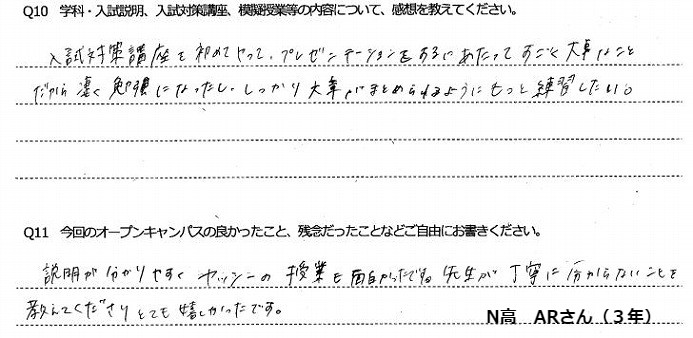 Q10　学科・入試説明、入試対策講座、模擬授業等の内容について、感想を教えてください。
入試対策講座を初めてやって、プレゼンテーションをするにあたってすごく大事なこと
だから凄く勉強になったし、しっかり大事がまとめられるようにもっと練習したい。
Q11　今回のオープンキャンパスの良かったこと、残念だったことなどご自由にお書きください。
説明が分かりやすく ヤッシーの授業も面白かったですね 先生が丁寧に分からないことを
教えてくださりとても嬉しかったです。
N高　ARさん（３年）